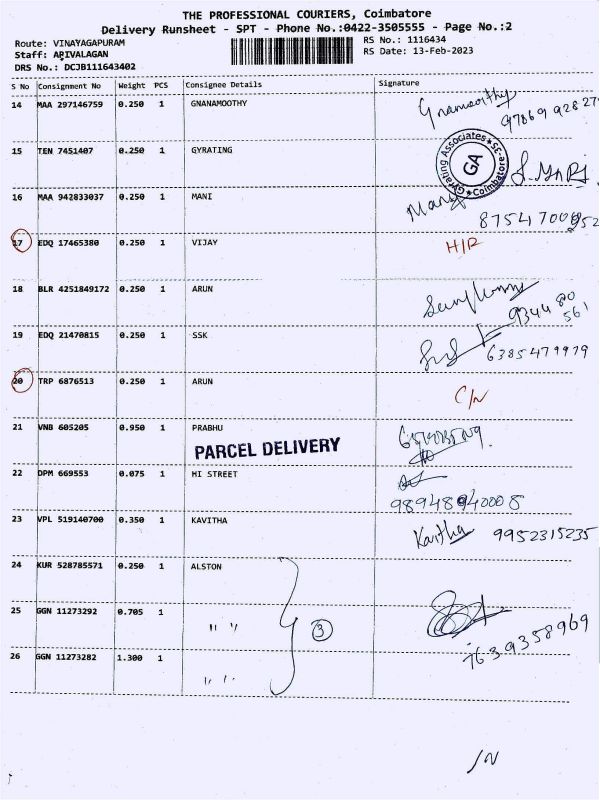 THE PROFESSIONAL COURIERS, Coimbatore
Delivery Runsheet - SPT - Phone No.:0422-3505555 - Page No.:2
Route: VINAYAGAPURAM
Staff: ARIVALAGAN
DRS No.: DCJB111643402
RS No.: 1116434
RS Date: 13-Feb-2023
S No Consignment No Weight PCS Consignee Details Signature
14 MAA 297146759 0.250 1 GNANAMOOTHY Gnamoorthy
15 TEN 7451407 0.250 1 GYRATING
Gyrating Associates * Coimbatore-35 * GA
16 MAA 942833037 0.250 1 MANI Mani
17 EDQ 17465380 0.250 1 VIJAY H/R
18 BLR 4251849172 0.250 1 ARUN
93448 80
561
19 EDQ 21470815 0.250 1 SSK 6385479979
20 TRP 6876513 0.250 1 ARUN C/N
21 VNB 605205 0.950 1 PRABHU
PARCEL DELIVERY
22 DPM 669553 0.075 1 HI STREET
23 VPL 519140700 0.350 1 KAVITHA Kavitha 9952315235
24 KUR 528785571 0.250 1 ALSTON
25 GGN 11273292 0.705 1 " " 3
7639358969
26 GGN 11273282 1.300 1 " "
/N